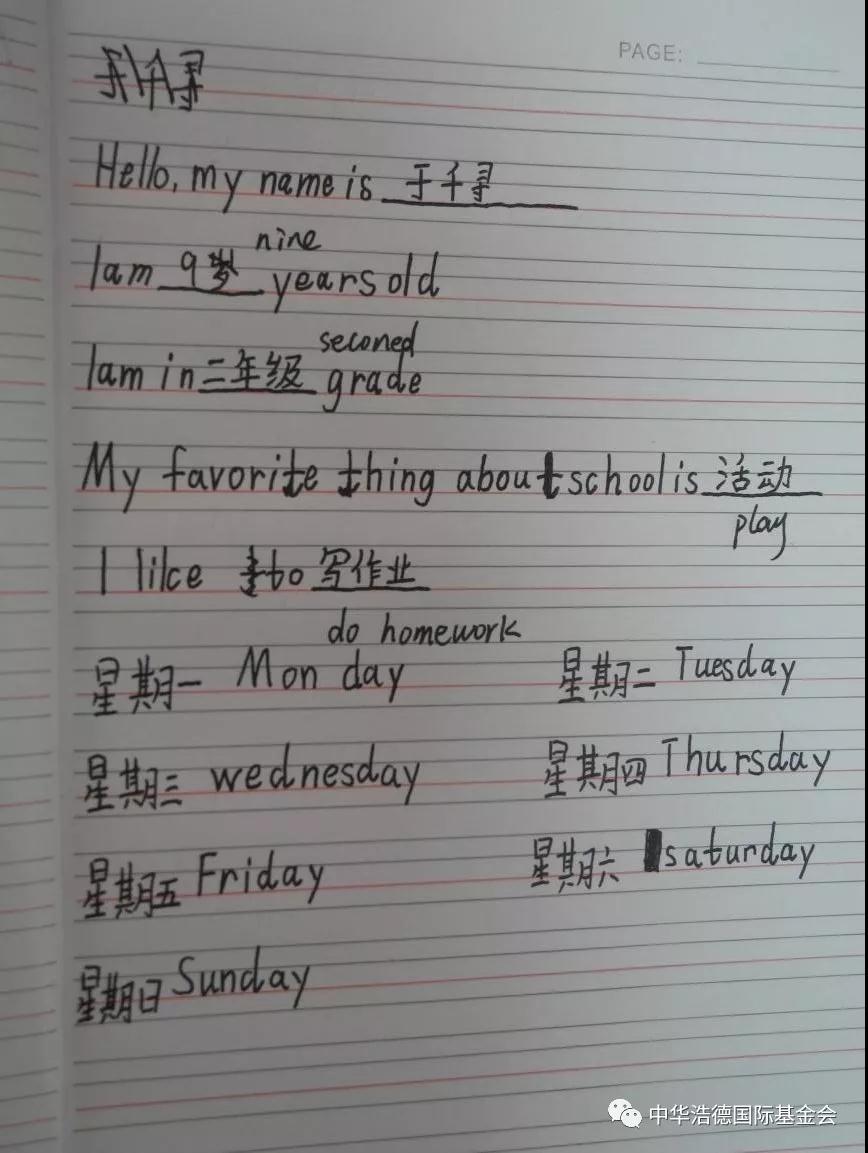 PAGE:
Hello, my name is 于千寻
nine
I am 9岁 years old
seconed
I am in 二年级 grade
My favorite thing about school is 活动
play
I like to 写作业
do homework
星期一 Mon day 星期二 Tuesday
星期三 wednesday 星期四 Thursday
星期五 Friday 星期六 saturday
星期日 Sunday
中华浩德国际基金会